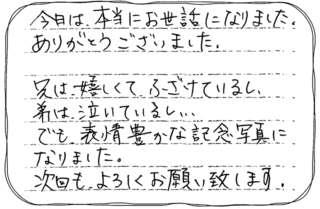 今日は、本当にお世話になりました。
ありがとうございました。
兄は、嬉しくて、ふざけているし、
弟は、泣いているし...
でも、表情豊かな記念写真に
なりました。
次回も、よろしくお願い致します。